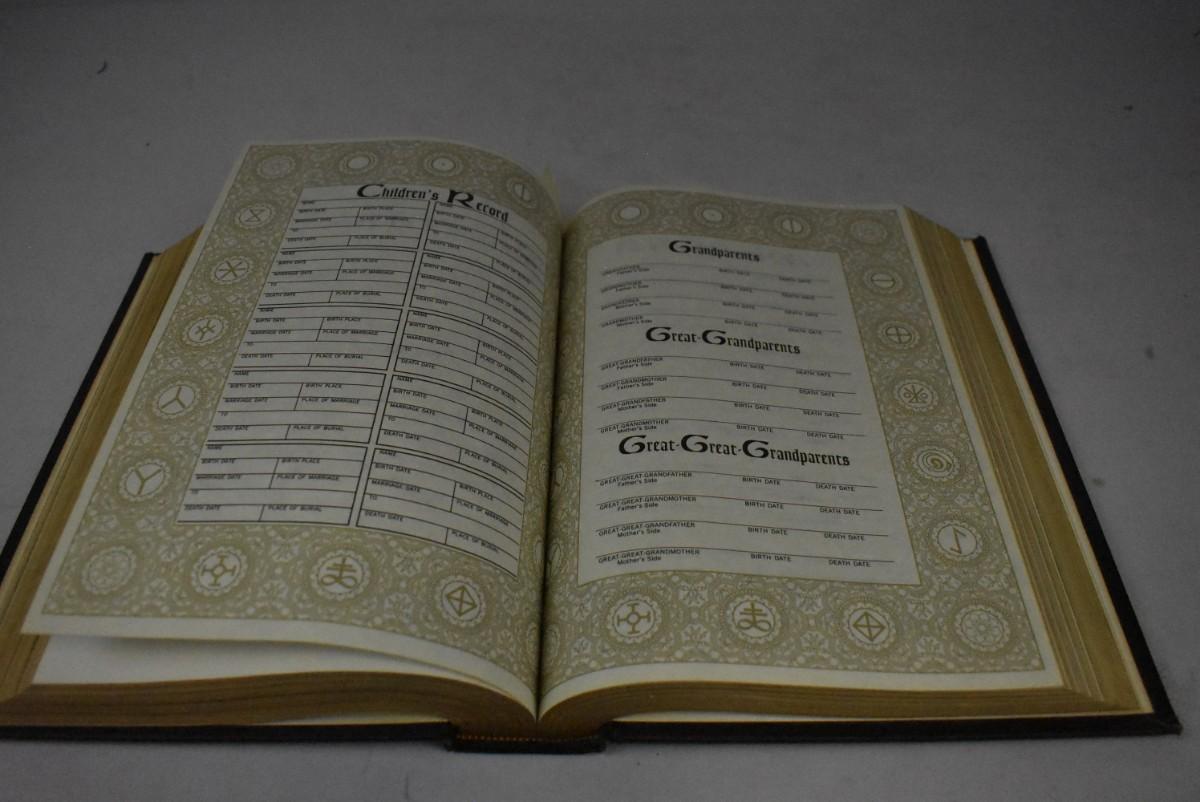 Children's Record
NAME
BIRTH DATE BIRTH PLACE
MARRIAGE DATE PLACE OF MARRIAGE
TO
DEATH DATE PLACE OF BURIAL
NAME
BIRTH DATE BIRTH PLACE
MARRIAGE DATE PLACE OF MARRIAGE
TO
DEATH DATE PLACE OF BURIAL
NAME
BIRTH DATE BIRTH PLACE
MARRIAGE DATE PLACE OF MARRIAGE
TO
DEATH DATE PLACE OF BURIAL
NAME
BIRTH DATE BIRTH PLACE
MARRIAGE DATE PLACE OF MARRIAGE
TO
DEATH DATE PLACE OF BURIAL
NAME
BIRTH DATE BIRTH PLACE
MARRIAGE DATE PLACE OF MARRIAGE
TO
DEATH DATE PLACE OF BURIAL
NAME
BIRTH DATE BIRTH PLACE
MARRIAGE DATE PLACE OF MARRIAGE
TO
DEATH DATE PLACE OF BURIAL
NAME
BIRTH DATE BIRTH PLACE
MARRIAGE DATE PLACE OF MARRIAGE
TO
DEATH DATE PLACE OF BURIAL
NAME
BIRTH DATE BIRTH PLACE
MARRIAGE DATE PLACE OF MARRIAGE
TO
DEATH DATE PLACE OF BURIAL
NAME
BIRTH DATE BIRTH PLACE
MARRIAGE DATE PLACE OF MARRIAGE
TO
DEATH DATE PLACE OF BURIAL
NAME
BIRTH DATE BIRTH PLACE
MARRIAGE DATE PLACE OF MARRIAGE
TO
DEATH DATE PLACE OF BURIAL
Grandparents
GRANDFATHER BIRTH DATE DEATH DATE
Father's Side
GRANDMOTHER BIRTH DATE DEATH DATE
Father's Side
GRANDFATHER BIRTH DATE DEATH DATE
Mother's Side
GRANDMOTHER BIRTH DATE DEATH DATE
Mother's Side
Great-Grandparents
GREAT-GRANDFATHER BIRTH DATE DEATH DATE
Father's Side
GREAT-GRANDMOTHER BIRTH DATE DEATH DATE
Father's Side
GREAT-GRANDFATHER BIRTH DATE DEATH DATE
Mother's Side
GREAT-GRANDMOTHER BIRTH DATE DEATH DATE
Mother's Side
Great-Great-Grandparents
GREAT-GREAT-GRANDFATHER BIRTH DATE DEATH DATE
Father's Side
GREAT-GREAT-GRANDMOTHER BIRTH DATE DEATH DATE
Father's Side
GREAT-GREAT-GRANDFATHER BIRTH DATE DEATH DATE
Mother's Side
GREAT-GREAT-GRANDMOTHER BIRTH DATE DEATH DATE
Mother's Side